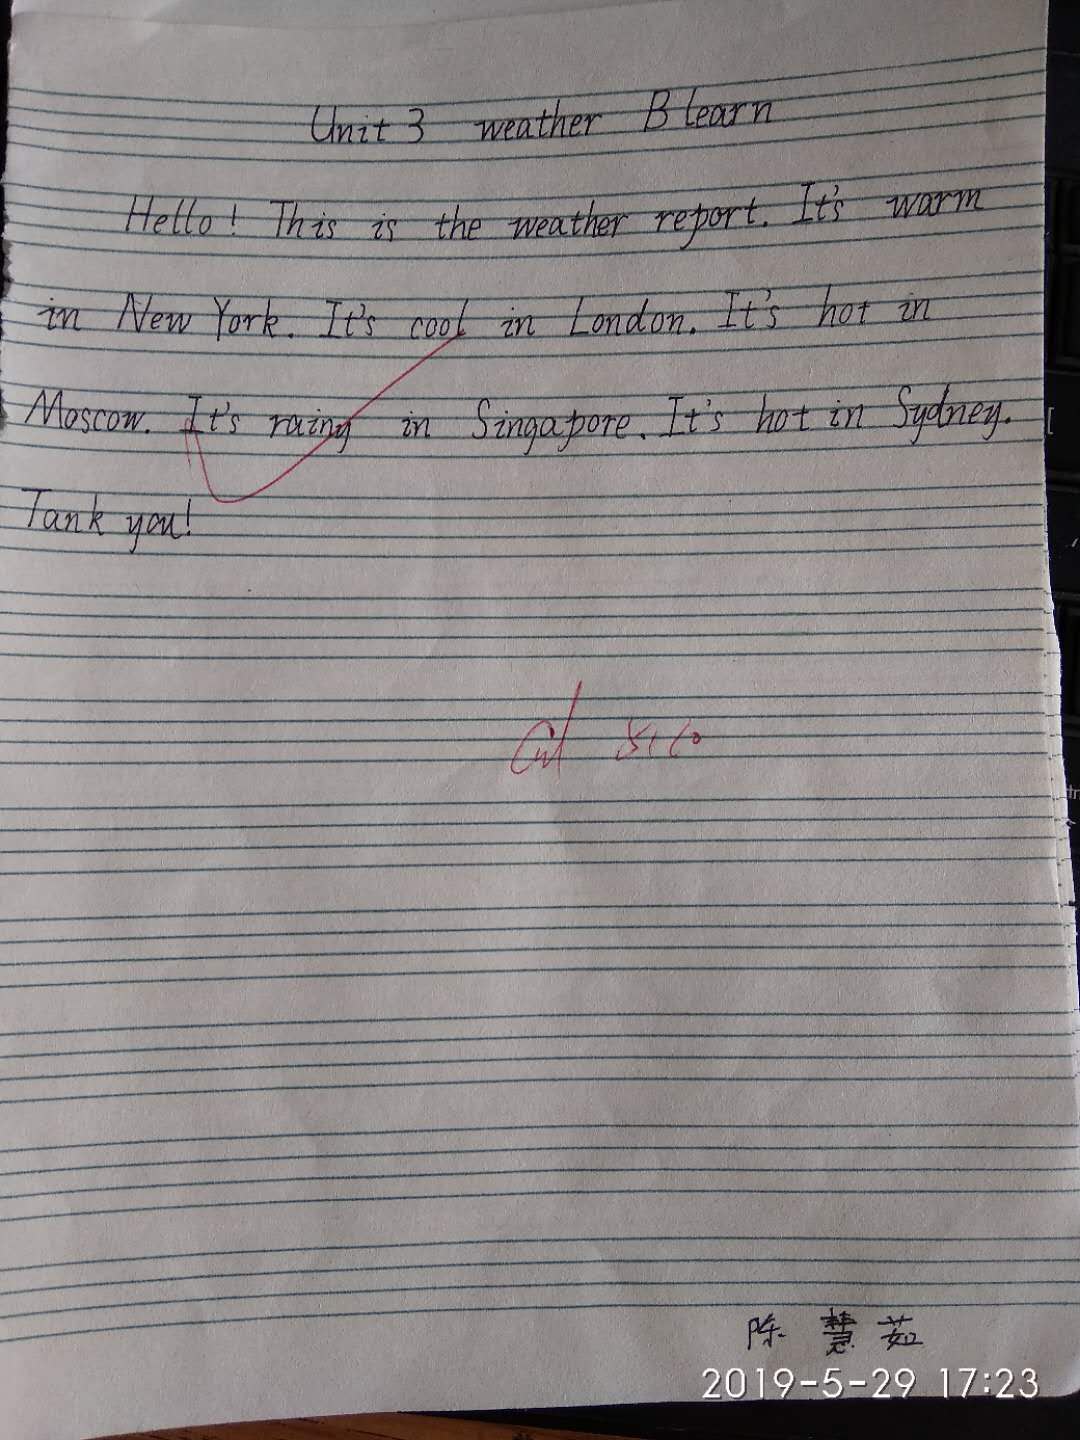 Unit 3 weather B learn
Hello! This is the weather report. It's warm
in New York. It's cool in London. It's hot in
Moscow. It's rainy in Singapore. It's hot in Sydney.
Tank you!
陈慧茹
2019-5-29 17:23